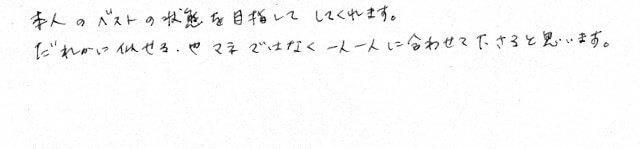 本人のベストの状態を目指してしてくれます。
だれかに似せる・やマネではなく一人一人に合わせて下さると思います。